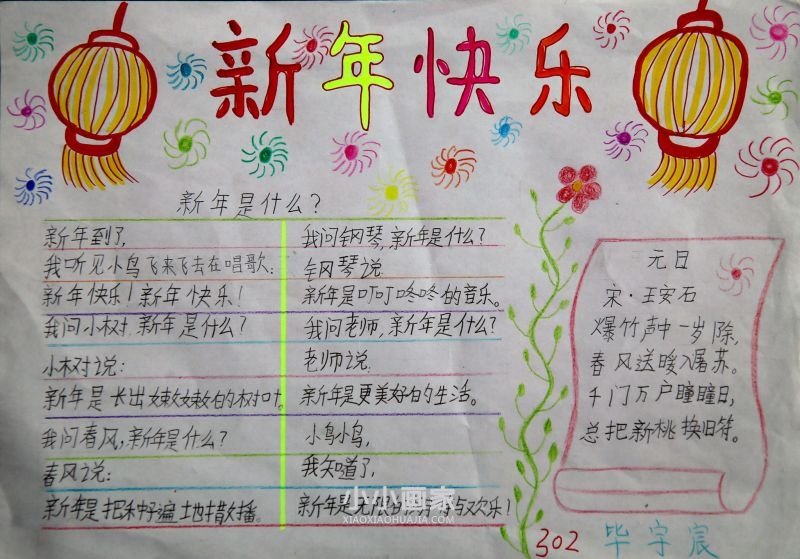 新年快乐
新年是什么?
新年到了,
我听见小鸟飞来飞去在唱歌:
新年快乐!新年快乐!
我问小树,新年是什么?
小树说:
新年是长出嫩嫩的树叶。
我问春风,新年是什么?
春风说:
新年是把种子遍地撒播。
我问钢琴,新年是什么?
钢琴说:
新年是叮叮咚咚的音乐。
我问老师,新年是什么?
老师说:
新年是更美好的生活。
小鸟小鸟,
我知道了,
新年是无限的与欢乐!
元日
宋·王安石
爆竹声中一岁除,
春风送暖入屠苏。
千门万户瞳瞳日,
总把新桃换旧符。
302 毕宇宸
小小画家
XIAOXIAOHUAJIA.COM